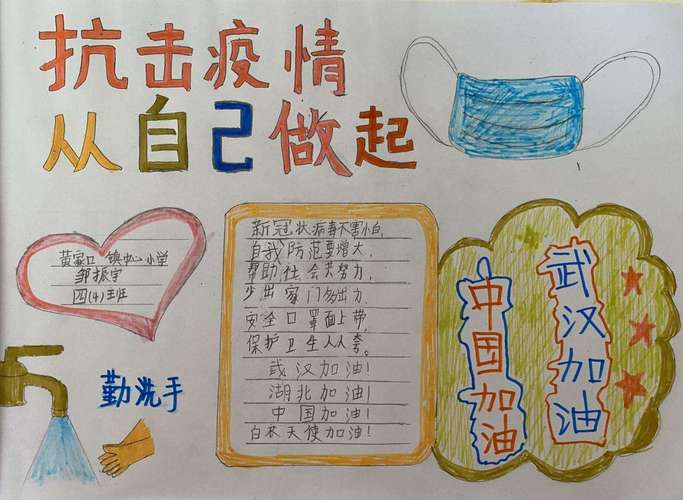 抗击疫情
从自己做起
黄家口镇中心小学
邹振宇
四(4)班
勤洗手
新冠状病毒不害怕,
自我防范要增大,
帮助社会共努力,
少出家门多出力.
安全口罩面上带,
保护卫生人人夸。
武汉加油!
湖北加油!
中国加油!
白衣天使加油!
中国加油
武汉加油